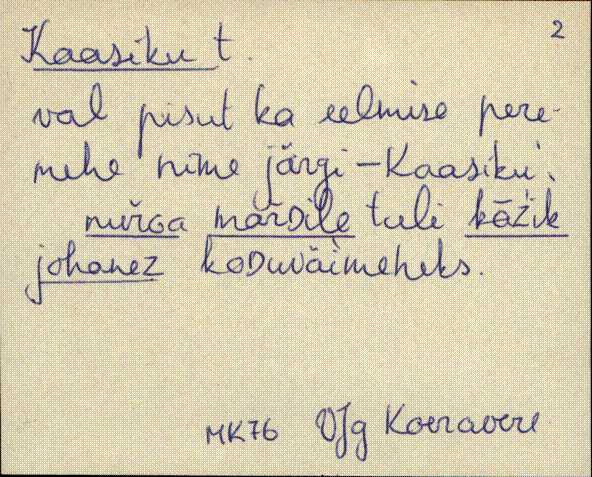 2
Kaasiku t.
val pisut ka eelmise pere-
mehe nime järgi - Kaasiku.
mäŕDile tuli kāžik
johanez koDuväimeheks.
MK76 VJg Koeravere